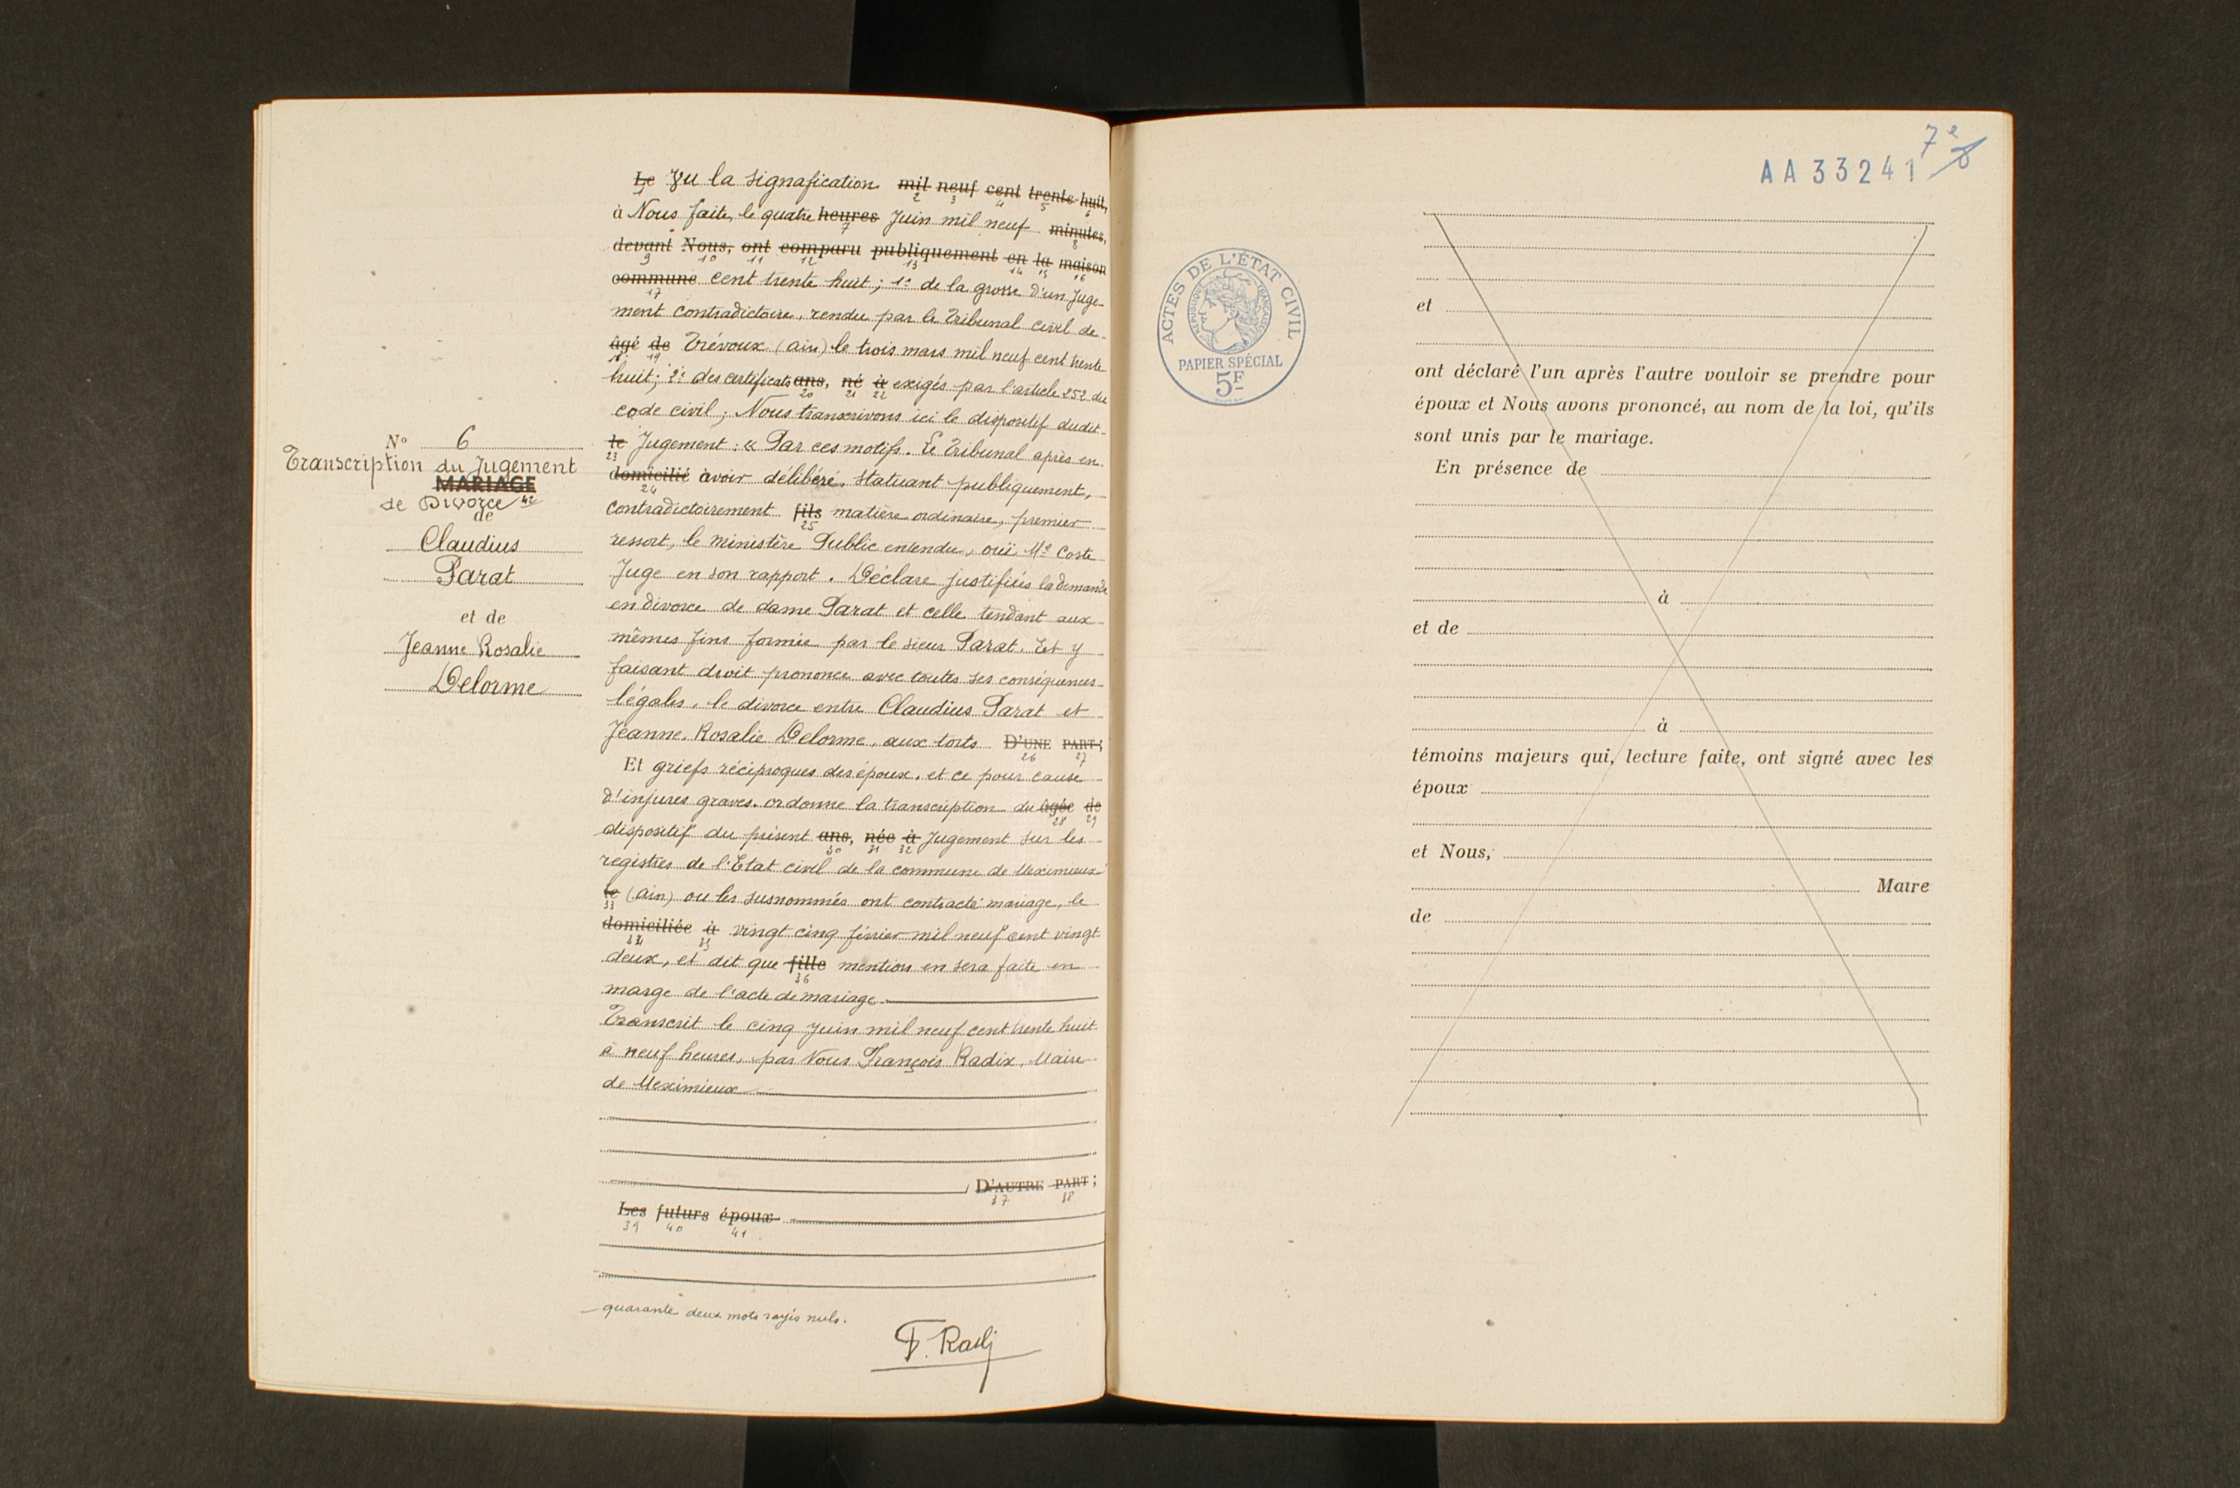 N° 6
Transcription du Jugement
MARIAGE
de Divorce 42
de
Claudius
Parat
et de
Jeanne Rosalie
Delorme
Le Vu la signafication mil neuf cent trente-huit,
à Nous faite, le quatre heures Juin mil neuf minutes,
devant Nous, ont comparu publiquement en la maison
commune cent trente huit; 1º de la grosse d'un Juge-
ment contradictoire, rendu par le Tribunal civil de
âgé de Trévoux (ain) le trois mars mil neuf cent trente
huit; 2º des certificats ans, né à exigés par l'article 252 du
code civil; Nous transcrivons ici le dispositif dudit
le Jugement: « Par ces motifs. Le Tribunal après en
domicilié avoir délibéré, statuant publiquement,
contradictoirement fils matière ordinaire, premier
ressort, le ministère Public entendu, ouï Me Coste
Juge en son rapport. Déclare justifiés la demande
en divorce de dame Parat et celle tendant aux
mêmes fins formée par le sieur Parat. Et y
faisant droit prononce avec toutes ses conséquences
légales, le divorce entre Claudius Parat et
Jeanne, Rosalie Delorme, aux torts D'UNE PART;
Et griefs réciproques des époux, et ce pour cause
d'injures graves. ordonne la transcription du âgée de
dispositif du présent ans, née à Jugement sur les
registres de l'Etat civil de la commune de Meximieux
le (ain) ou les susnommés ont contracté mariage, le
domiciliée à vingt cinq février mil neuf cent vingt
deux, et dit que fille mention en sera faite en
marge de l'acte de mariage.
Transcrit le cinq Juin mil neuf cent trente huit
à neuf heures, par Nous François Radix, Maire
de Meximieux
D'AUTRE PART;
Les futurs époux
quarante deux mots rayés nuls.
F. Radj
7e
AA33241
ACTES DE L'ÉTAT CIVIL
RÉPUBLIQUE FRANÇAISE
PAPIER SPÉCIAL
5F
et
ont déclaré l'un après l'autre vouloir se prendre pour
époux et Nous avons prononcé, au nom de la loi, qu'ils
sont unis par le mariage.
En présence de
à
et de
à
témoins majeurs qui, lecture faite, ont signé avec les
époux
et Nous,
Maire
de